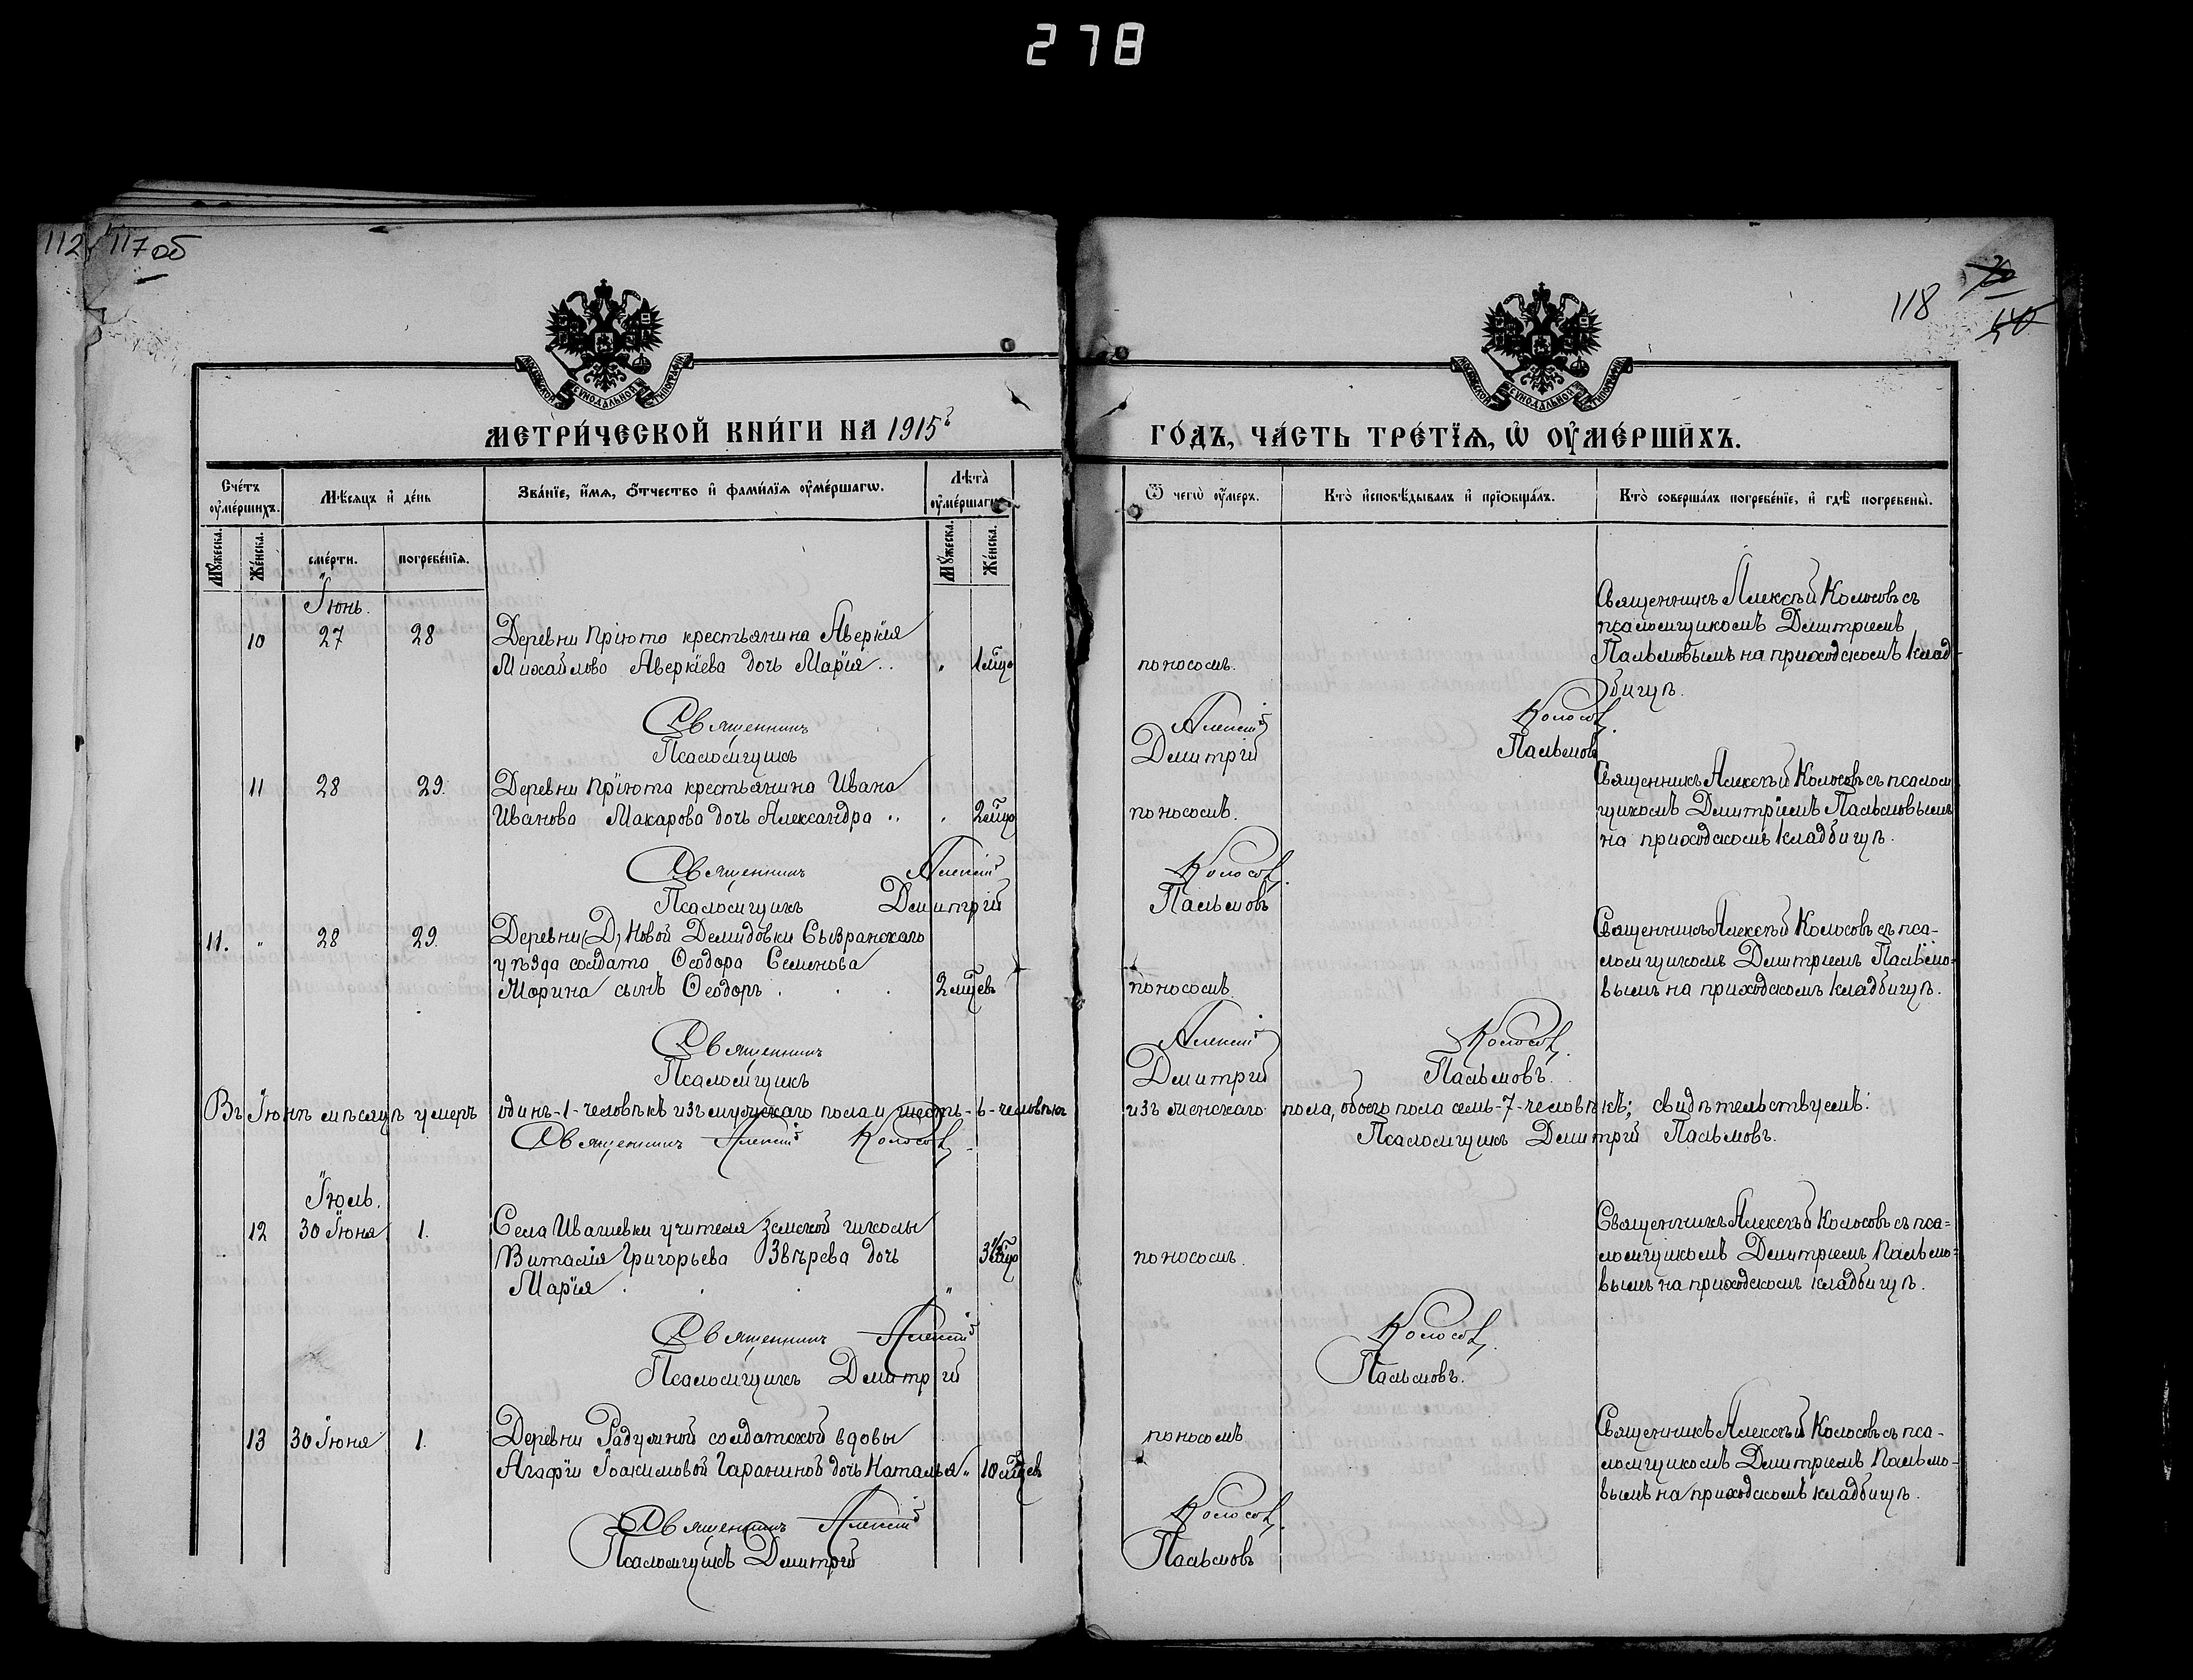 278
112
117 об
118
МОСКОВСКОЙ СѴНОДАЛЬНОЙ ТИПОГРАФІИ
МОСКОВСКОЙ СѴНОДАЛЬНОЙ ТИПОГРАФІИ
МЕТРИ́ЧЕСКОЙ КНИ́ГИ НА 1915 г̃
ГО́ДЪ, ЧА́СТЬ ТРЕ́ТЇЯ, Ѽ ОУ҆МЕ́РШИХЪ.
Сче́тъ оу҆ме́ршихъ.
Мѣ́сяцъ и҆ де́нь
Зва́нїе, и҆́мя, ѻ҆́тчество и҆ фами́лїя оу҆ме́ршагѡ.
Лѣ́та оу҆ме́ршагѡ
Ѿ чегѡ̀ оу҆́меръ.
Кто̀ и҆сповѣ́дывалъ и҆ прїѡбща́лъ.
Кто̀ соверша́лъ погребе́нїе, и҆ гдѣ̀ погребены̀.
Мꙋ́жеска.
Же́нска.
сме́рти.
погребе́нїя.
Мꙋ́жеска.
Же́нска.
Іюнь.
10 27 28 Деревни Пріюта крестьянина Аверкія
Михайлова Аверкіева дочь Марія .. „ 1 мѣца
поносомъ.
Священникъ Алексѣй Колосовъ съ
псаломщикомъ Димитріемъ
Пальмовымъ на приходскомъ клад-
бищѣ.
Священникъ Алексій Колосовъ.
Псаломщикъ Димитрій Пальмовъ
11 28 29. Деревни Пріюта крестьянина Ивана
Иванова Макарова дочь Александра .. „ 2 мѣца
поносомъ.
Священникъ Алексѣй Колосовъ съ псалом
щикомъ Димитріемъ Пальмовымъ
на приходскомъ кладбищѣ.
Священникъ Алексій Колосовъ.
Псаломщикъ Димитрій Пальмовъ
11. „ 28 29. Деревни (Д) Новой Демидовки Сызранскаго
уѣзда солдата Ѳеодора Семенова
Морина сынъ Ѳеодоръ . . . 2 мѣцевъ
поносомъ.
Священникъ Алексѣй Колосовъ съ пса-
ломщикомъ Димитріемъ Пальмо-
вымъ на приходскомъ кладбищѣ.
Священникъ Алексій Колосовъ.
Псаломщикъ Димитрій Пальмовъ.
Въ Іюнѣ мѣсяцѣ умеръ одинъ-1-человѣкъ изъ мужскаго пола и шесть-6-человѣкъ изъ женскаго пола, обоего пола семь-7-человѣкъ; свидѣтельствуемъ:
Священникъ Алексій Колосовъ. Псаломщикъ Димитрій Пальмовъ.
Іюль.
12 30 Іюня 1. Села Ивашевки учителя земской школы
Виталія Григорьева Звѣрева дочь
Марія . . . „
поносомъ.
Священникъ Алексѣй Колосовъ съ пса=
ломщикомъ Димитріемъ Пальмо=
вымъ на приходскомъ кладбищѣ.
Священникъ Алексій Колосовъ.
Псаломщикъ Димитрій Пальмовъ.
13 30 Іюня 1. Деревни солдатской вдовы
Агафіи Іоакимовой дочь Наталья „ 10 мѣцевъ
поносомъ
Священникъ Алексѣй Колосовъ съ пса-
ломщикомъ Димитріемъ Пальмо-
вымъ на приходскомъ кладбищѣ.
Священникъ Алексій Колосовъ.
Псаломщикъ Димитрій Пальмовъ